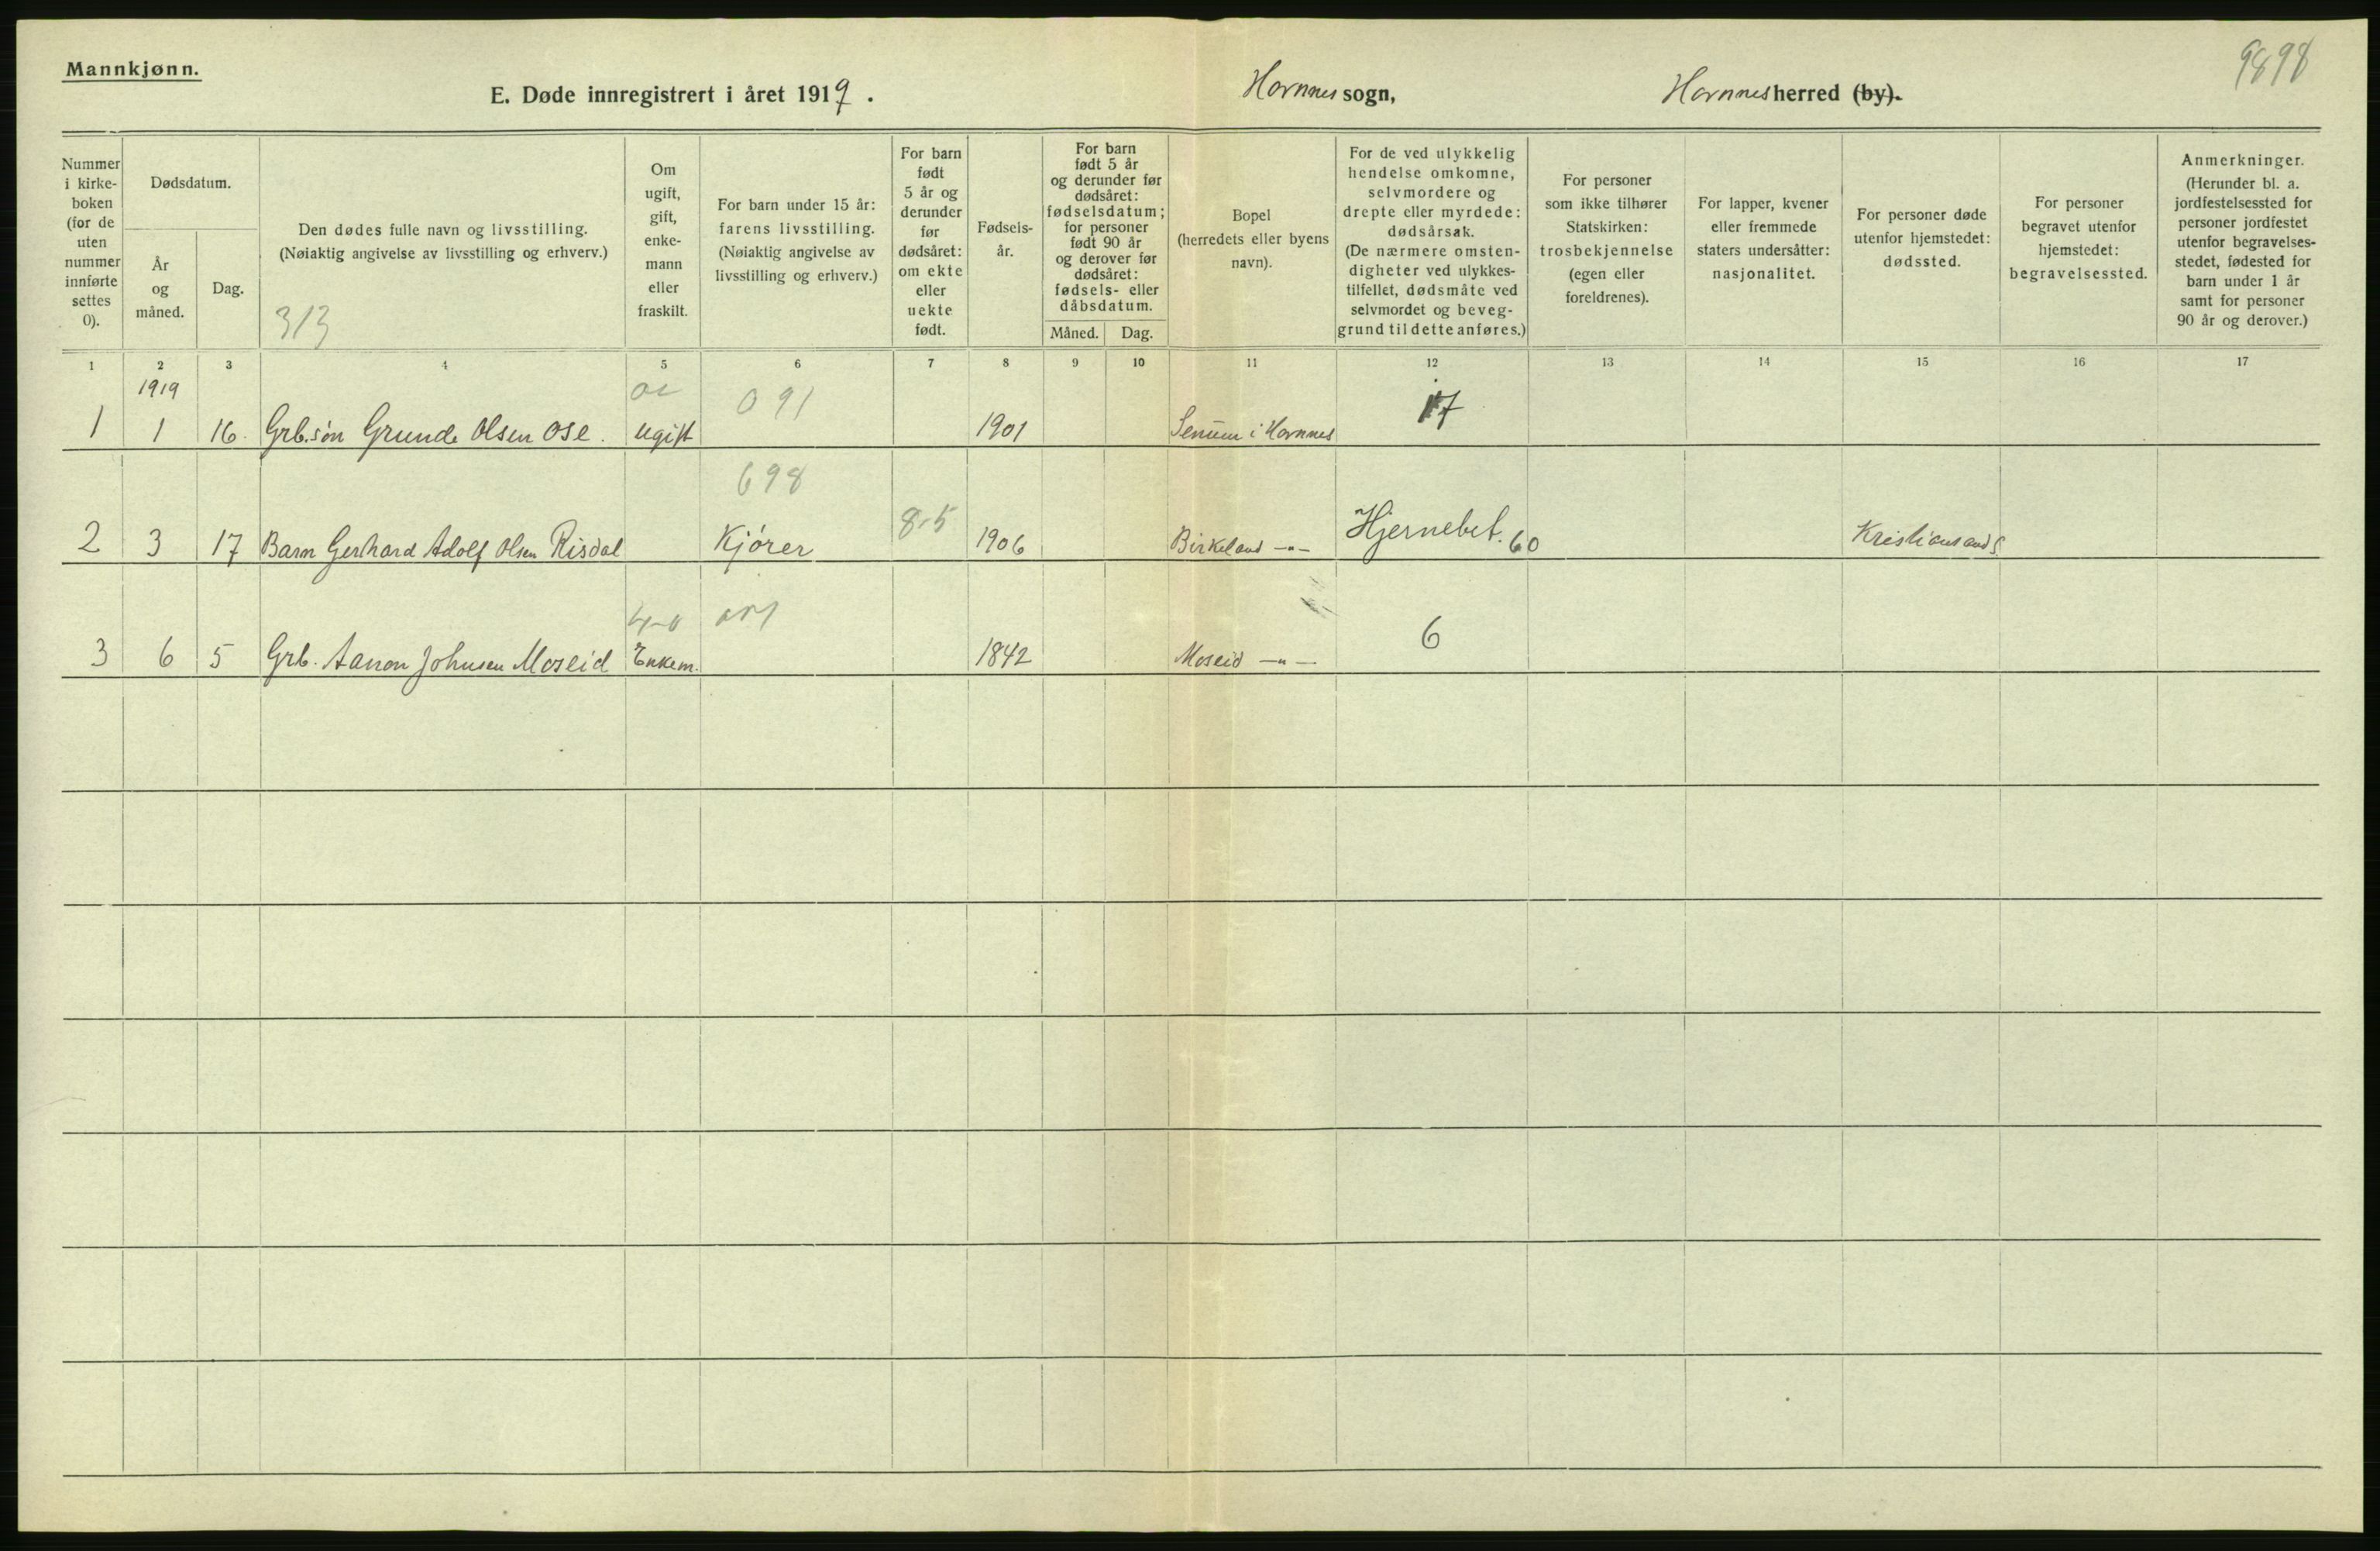 Mannkjønn.
9898
E. Døde innregistrert i året 1919. Hornnes sogn, Hornnes herred (by).
Nummer i kirke-boken (for de uten nummer innførte settes 0).
Dødsdatum.
År og måned.
Dag.
Den dødes fulle navn og livsstilling.
(Nøiaktig angivelse av livsstilling og erhverv.)
313
Om ugift, gift, enke-mann eller fraskilt.
For barn under 15 år: farens livsstilling.
(Nøiaktig angivelse av livsstilling og erhverv.)
For barn født 5 år og derunder før dødsåret: om ekte eller uekte født.
Fødsels-år.
For barn født 5 år og derunder før dødsåret: fødselsdatum; for personer født 90 år og derover før dødsåret: fødsels- eller dåbsdatum.
Måned. Dag.
Bopel (herredets eller byens navn).
For de ved ulykkelig hendelse omkomne, selvmordere og drepte eller myrdede: dødsårsak.
(De nærmere omsten-digheter ved ulykkes-tilfellet, dødsmåte ved selvmordet og beveg-grund til dette anføres.)
For personer som ikke tilhører Statskirken: trosbekjennelse (egen eller foreldrenes).
For lapper, kvener eller fremmede staters undersåtter: nasjonalitet.
For personer døde utenfor hjemstedet: dødssted.
For personer begravet utenfor hjemstedet: begravelsessted.
Anmerkninger.
(Herunder bl. a. jordfestelsessted for personer jordfestet utenfor begravelses-stedet, fødested for barn under 1 år samt for personer 90 år og derover.)
1 2 3 4 5 6 7 8 9 10 11 12 13 14 15 16 17
1919
091
1 1 16. Grb.søn Grunde Olsen Ose. ugift 1901 Senum i Hornnes 17
698
2 3 17 Barn Gerhard Adolf Olsen Risdal Kjører 8-5 1906 Birkeland -"- Hjernebet. 60 Kristiansand S.
3 6 5 Grb. Aanon Johnsen Moseid Enkem. 1842 Moseid -"- 6